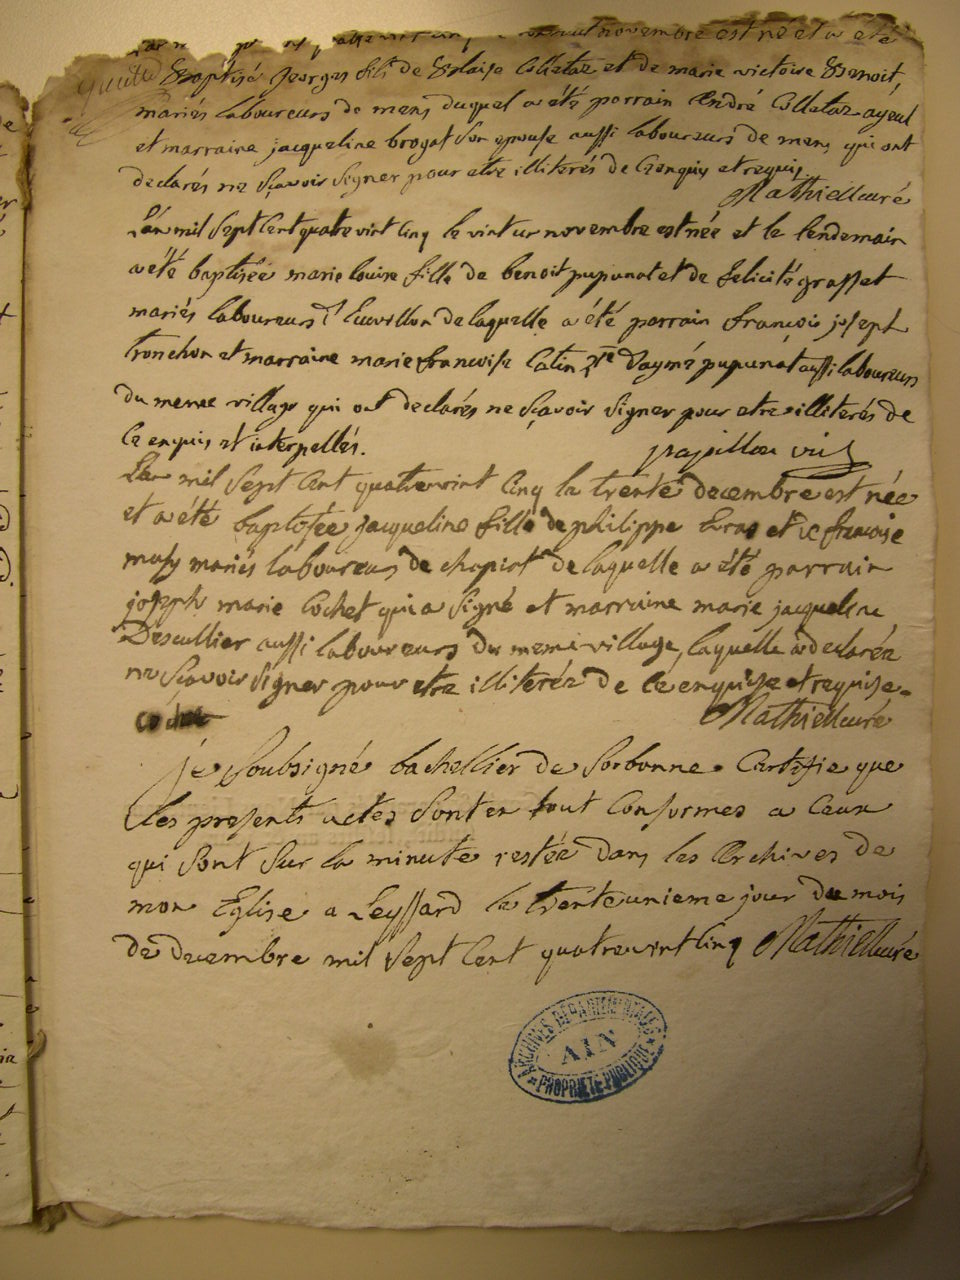 novembre est né et a été
baptisé georges fils de Blaise Colletaz et de marie victoire Benoit
mariés laboureurs de mens duquel a été parrain André Colletaz ayeul
et marraine jacqueline brogat son epouse aussi laboureurs de mens qui ont
declarés ne sçavoir signer pour etre illiterés de ce enquis et requis
Mathieu curé
L'an mil sept cent quatre vint cinq le vint un novembre est née et le lendemain
a été baptisée marie louise fille de benoit pupunat et de felicité grasset
mariés laboureurs de laquelle a été parrain françois joseph
tronchon et marraine marie françoise Catin vve d'aymé pupunat aussi laboureurs
du meme village qui ont declarés ne sçavoir signer pour etre illiterés de
ce enquis et interpellés. papillon vic
L'an mil sept cent quatre vint cinq le trente decembre est née
et a été baptisée jacqueline fille de philippe et de françoise
mariés laboureurs de de laquelle a été parrain
joseph marie Cochet qui a signé et marraine marie jacqueline
Descullier aussi laboureurs du meme village, laquelle a declarée
ne sçavoir signer pour etre illiterée de ce enquise et requise.
cochet Mathieu curé
je soubsigné bachellier de Sorbonne Certifie que
les presents actes sont en tout Conformes a Ceux
qui sont sur la minute restée dans les Archives de
mon Eglise a Leyssard le trente unieme jour du mois
de decembre mil sept cent quatre vint cinq Mathieu curé
ARCHIVES DÉPARTEMENTALES
AIN
PROPRIÉTÉ PUBLIQUE